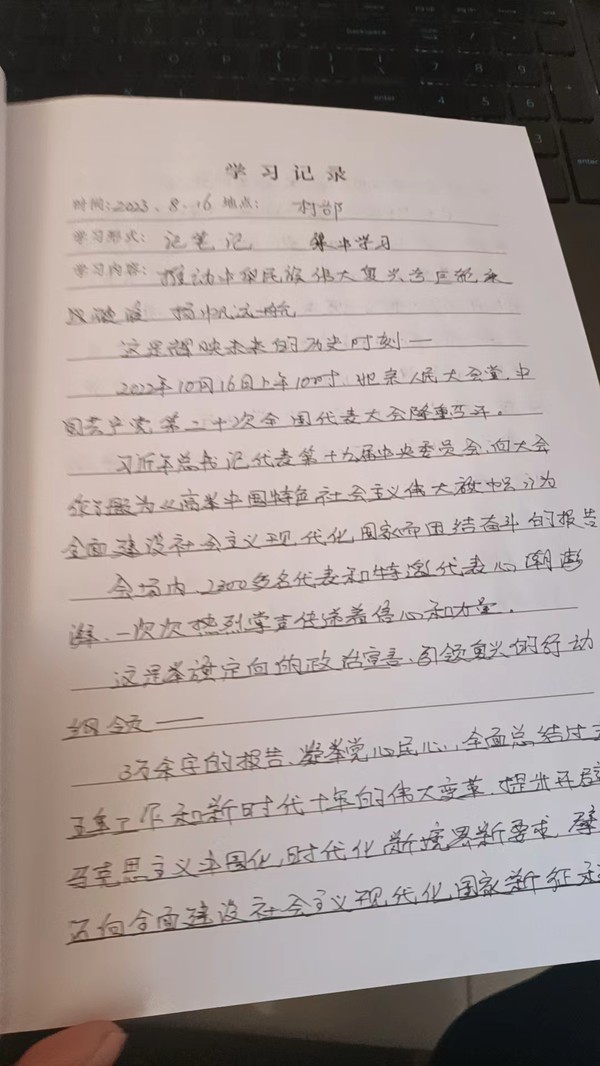 学习记录
时间:2023.8.16 地点: 村部
学习形式: 记笔记 集中学习
学习内容: 推动中华民族伟大复兴号巨轮乘
风破浪 扬帆远航
这是辉映未来的历史时刻——
2022年10月16日上午10时,北京人民大会堂,中
国共产党第二十次全国代表大会隆重召开。
习近平总书记代表第十九届中央委员会,向大会
作了题为《高举中国特色社会主义伟大旗帜 为
全面建设社会主义现代化国家而团结奋斗的报告
会场内,2300多名代表和特邀代表心潮澎
湃、一次次热烈掌声传递着信心和力量。
这是举旗定向的政治宣言、引领复兴的行动
纲领——
3万余字的报告、凝聚党心民心,全面总结过去
五年工作和新时代十年的伟大变革,提出开辟
马克思主义中国化时代化新境界新要求,擘
迈向全面建设社会主义现代化国家新征程